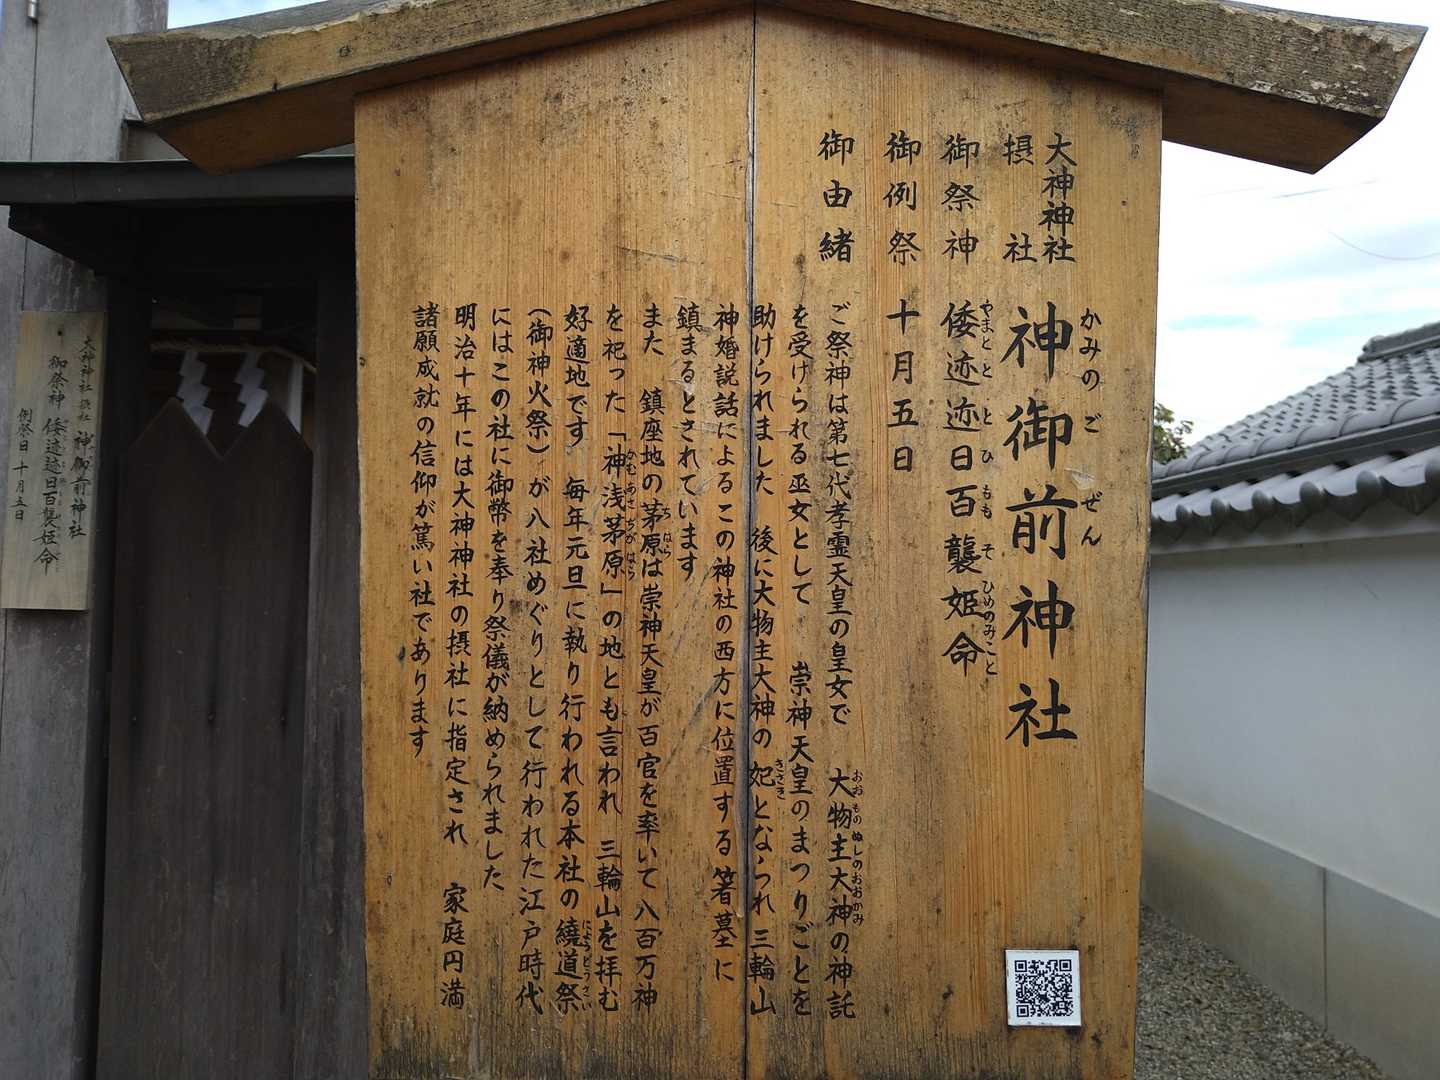 大神神社
摂社
神御前神社
かみのごぜん
御祭神 倭迹迹日百襲姫命
やまと と と ひ もも そ ひめのみこと
御例祭 十月五日
御由緒
ご祭神は第七代孝霊天皇の皇女で 大物主大神の神託
おおものぬしのおおかみ
を受けられる巫女として 崇神天皇のまつりごとを
助けられました 後に大物主大神の妃となられ 三輪山
きさき
神婚説話によるこの神社の西方に位置する箸墓に
鎮まるとされています
また 鎮座地の茅原は崇神天皇が百官を率いて八百万神
ち はら
を祀った「神浅茅原」の地とも言われ 三輪山を拝む
かむ あさ ぢが はら
好適地です 毎年元旦に執り行われる本社の繞道祭
にょうどうさい
(御神火祭)が八社めぐりとして行われた江戸時代
にはこの社に御幣を奉り祭儀が納められました
明治十年には大神神社の摂社に指定され 家庭円満
諸願成就の信仰が篤い社であります
大神神社摂社 神御前神社
御祭神 倭迹迹日百襲姫命
例祭日 十月五日